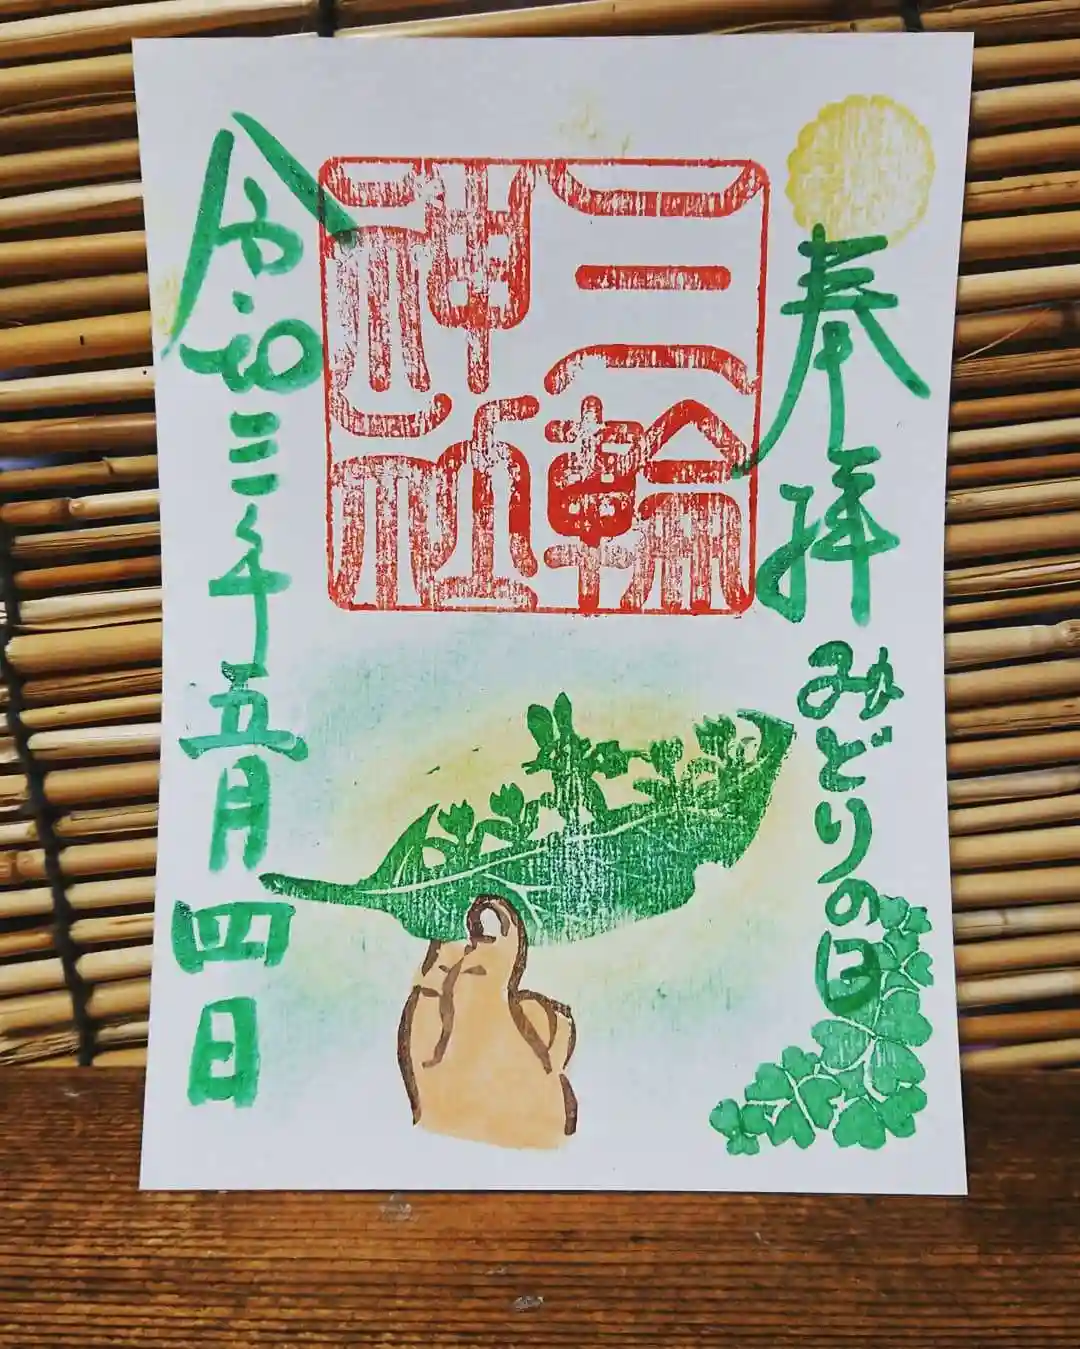 奉拝
みどりの日
三輪
神社
令和三年五月四日